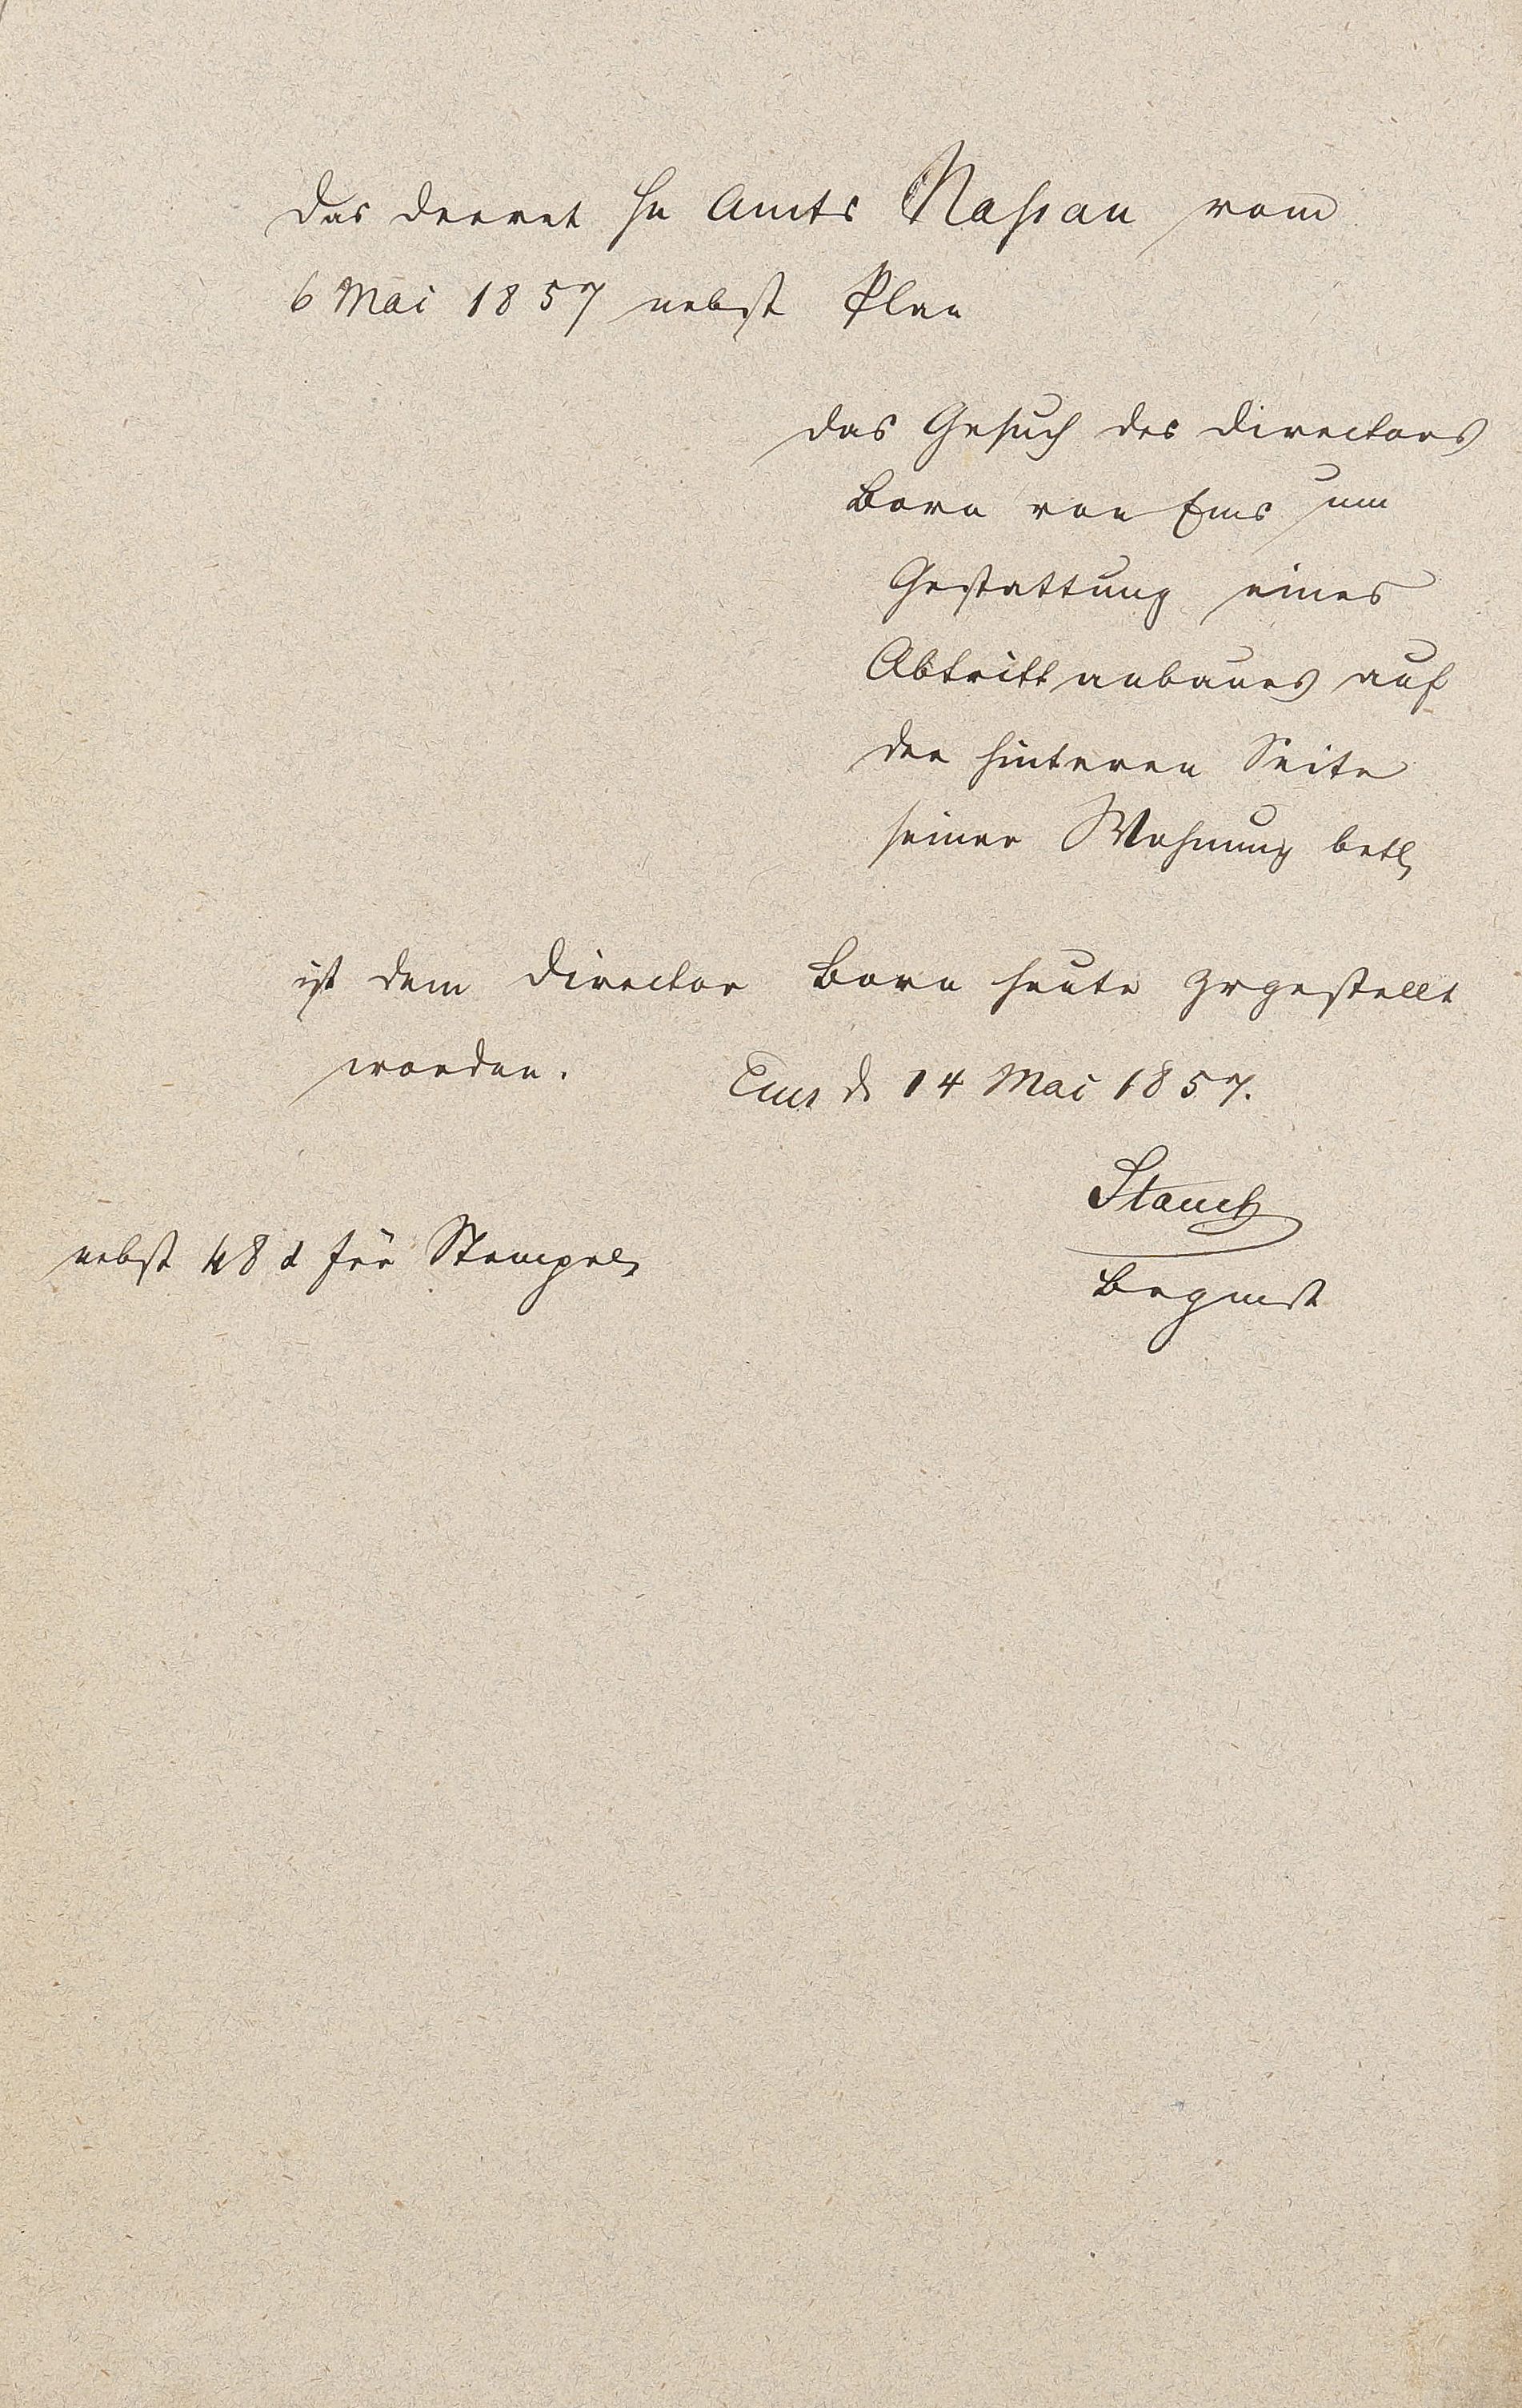 Das Decret Hn Amts Nassau vom
6 Mai 1857 nebst Plan
das Gesuch des Directors
Born von Ems um
Gestattung eines
Abtrittanbaues auf
der hinteren Seite
seiner Wohnung betr
ist dem Director Born heute zugestellt
worden.
Ems d 14 Mai 1857.
Stauch
nebst 48 x für Stempel